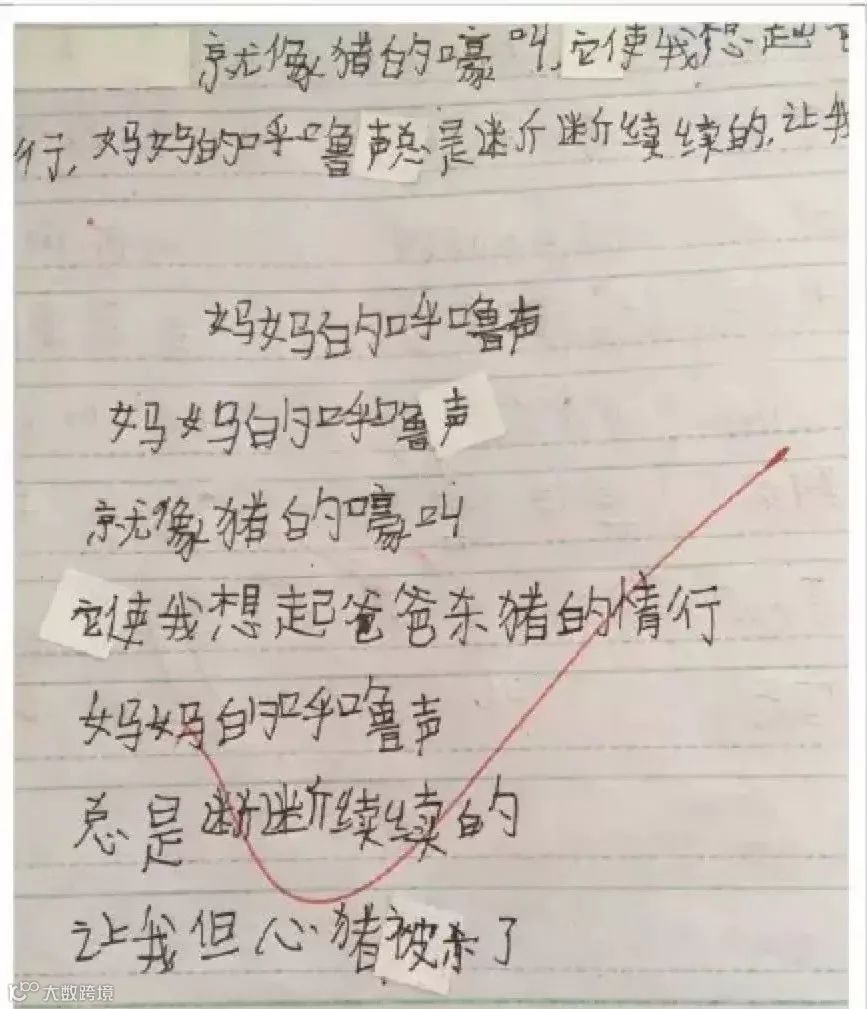 就像猪的嚎叫,它使我想起
行,妈妈的呼噜声总是断断续续的,让我
妈妈的呼噜声
妈妈的呼噜声
就像猪的嚎叫
它使我想起爸爸杀猪的情行
妈妈的呼噜声
总是断断续续的
让我但心猪被杀了
大数跨境